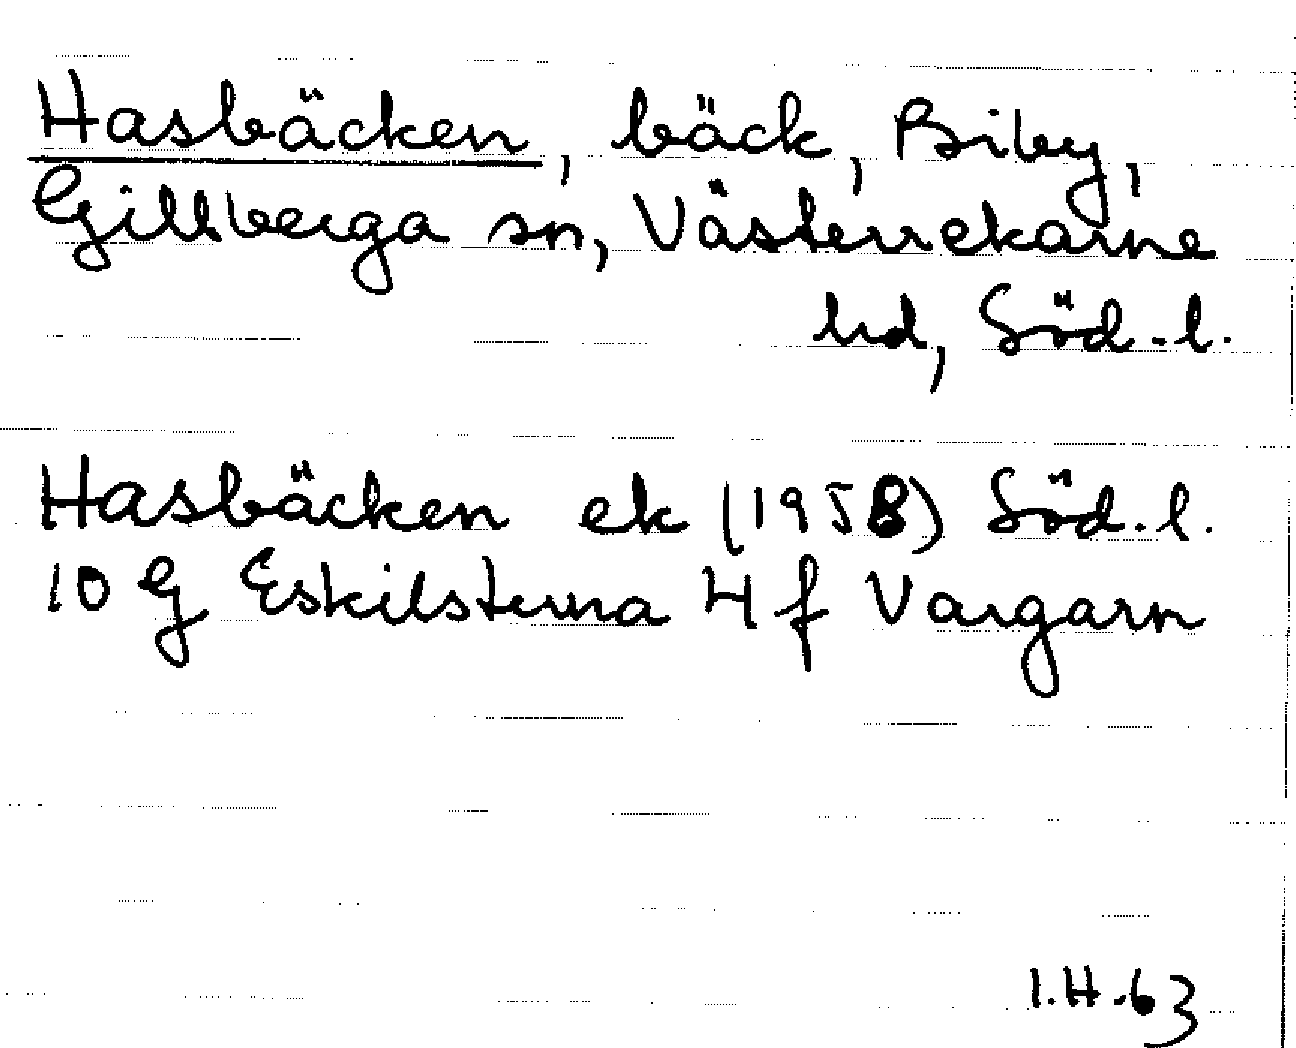 Hasbäcken, bäck, Biby,
Gillberga sn, Västerrekarne
hd, Söd.l.
Hasbäcken ek (1958) Söd.l.
10 G Eskilstuna 4 f Vargarn
I.H.63